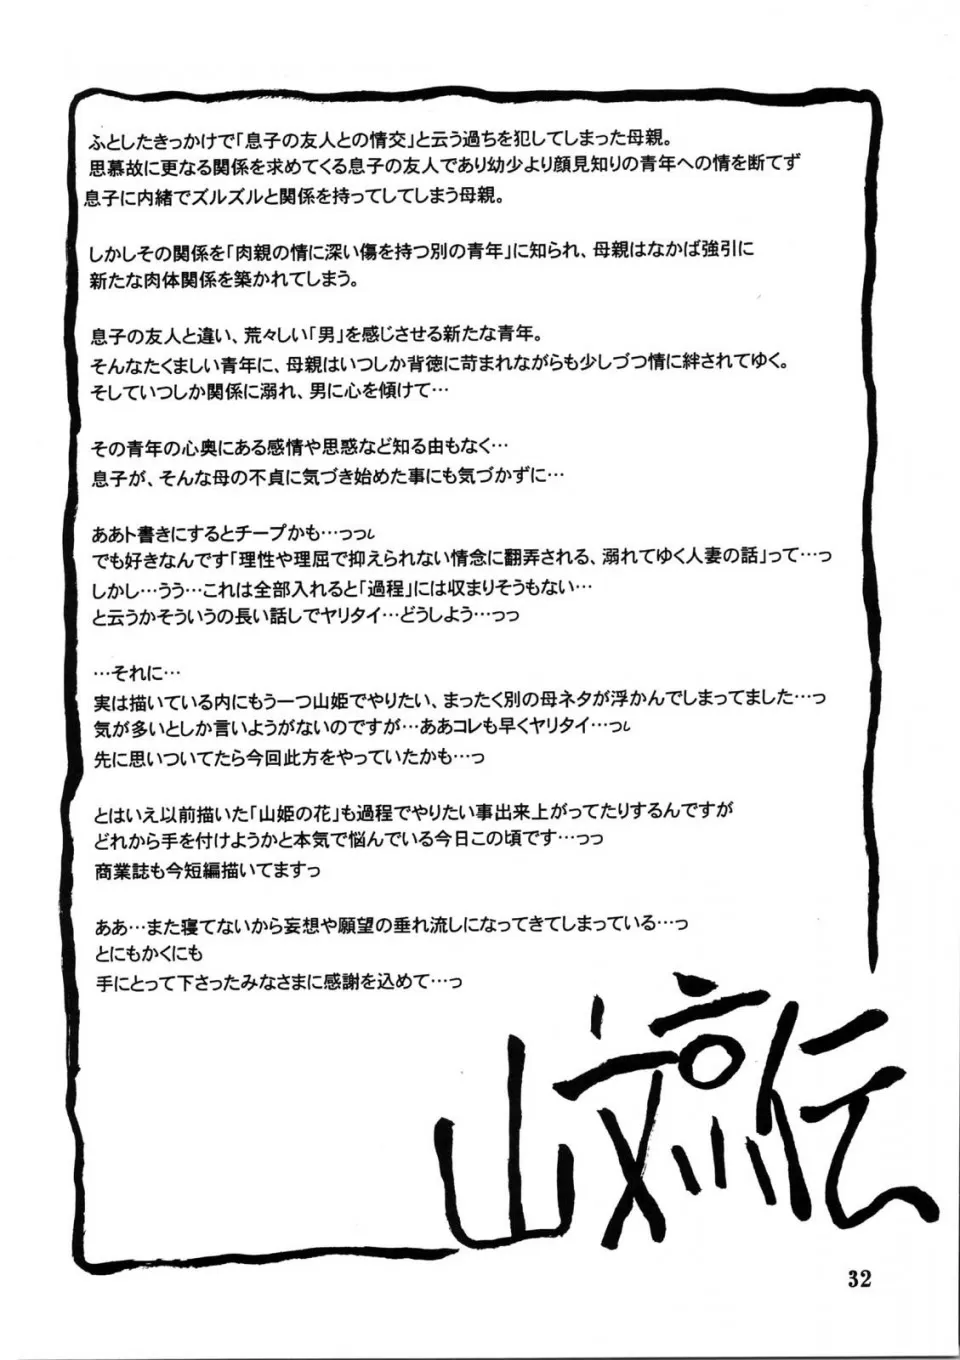 ふとしたきっかけで「息子の友人との情交」と云う過ちを犯してしまった母親。
思慕故に更なる関係を求めてくる息子の友人であり幼少より顔見知りの青年への情を断てず
息子に内緒でズルズルと関係を持ってしてしまう母親。
しかしその関係を「肉親の情に深い傷を持つ別の青年」に知られ、母親はなかば強引に
新たな肉体関係を築かれてしまう。
息子の友人と違い、荒々しい「男」を感じさせる新たな青年。
そんなたくましい青年に、母親はいつしか背徳に苛まれながらも少しづつ情に絆されてゆく。
そしていつしか関係に溺れ、男に心を傾けて…
その青年の心奥にある感情や思惑など知る由もなく…
息子が、そんな母の不貞に気づき始めた事にも気づかずに…
ああト書きにするとチープかも…っっし
でも好きなんです「理性や理屈で抑えられない情念に翻弄される、溺れてゆく人妻の話」って…っ
しかし…うう…これは全部入れると「過程」には収まりそうもない…
と云うかそういうの長い話しでヤリタイ…どうしよう…っっ
…それに…
実は描いている内にもう一つ山姫でやりたい、まったく別の母ネタが浮かんでしまってました…っ
気が多いとしか言いようがないのですが…ああコレも早くヤリタイ…っし
先に思いついてたら今回此方をやっていたかも…っ
とはいえ以前描いた「山姫の花」も過程でやりたい事出来上がってたりするんですが
どれから手を付けようかと本気で悩んでいる今日この頃です…っっ
商業誌も今短編描いてますっ
ああ…また寝てないから妄想や願望の垂れ流しになってきてしまっている…っ
とにもかくにも
手にとって下さったみなさまに感謝を込めて…っ
32